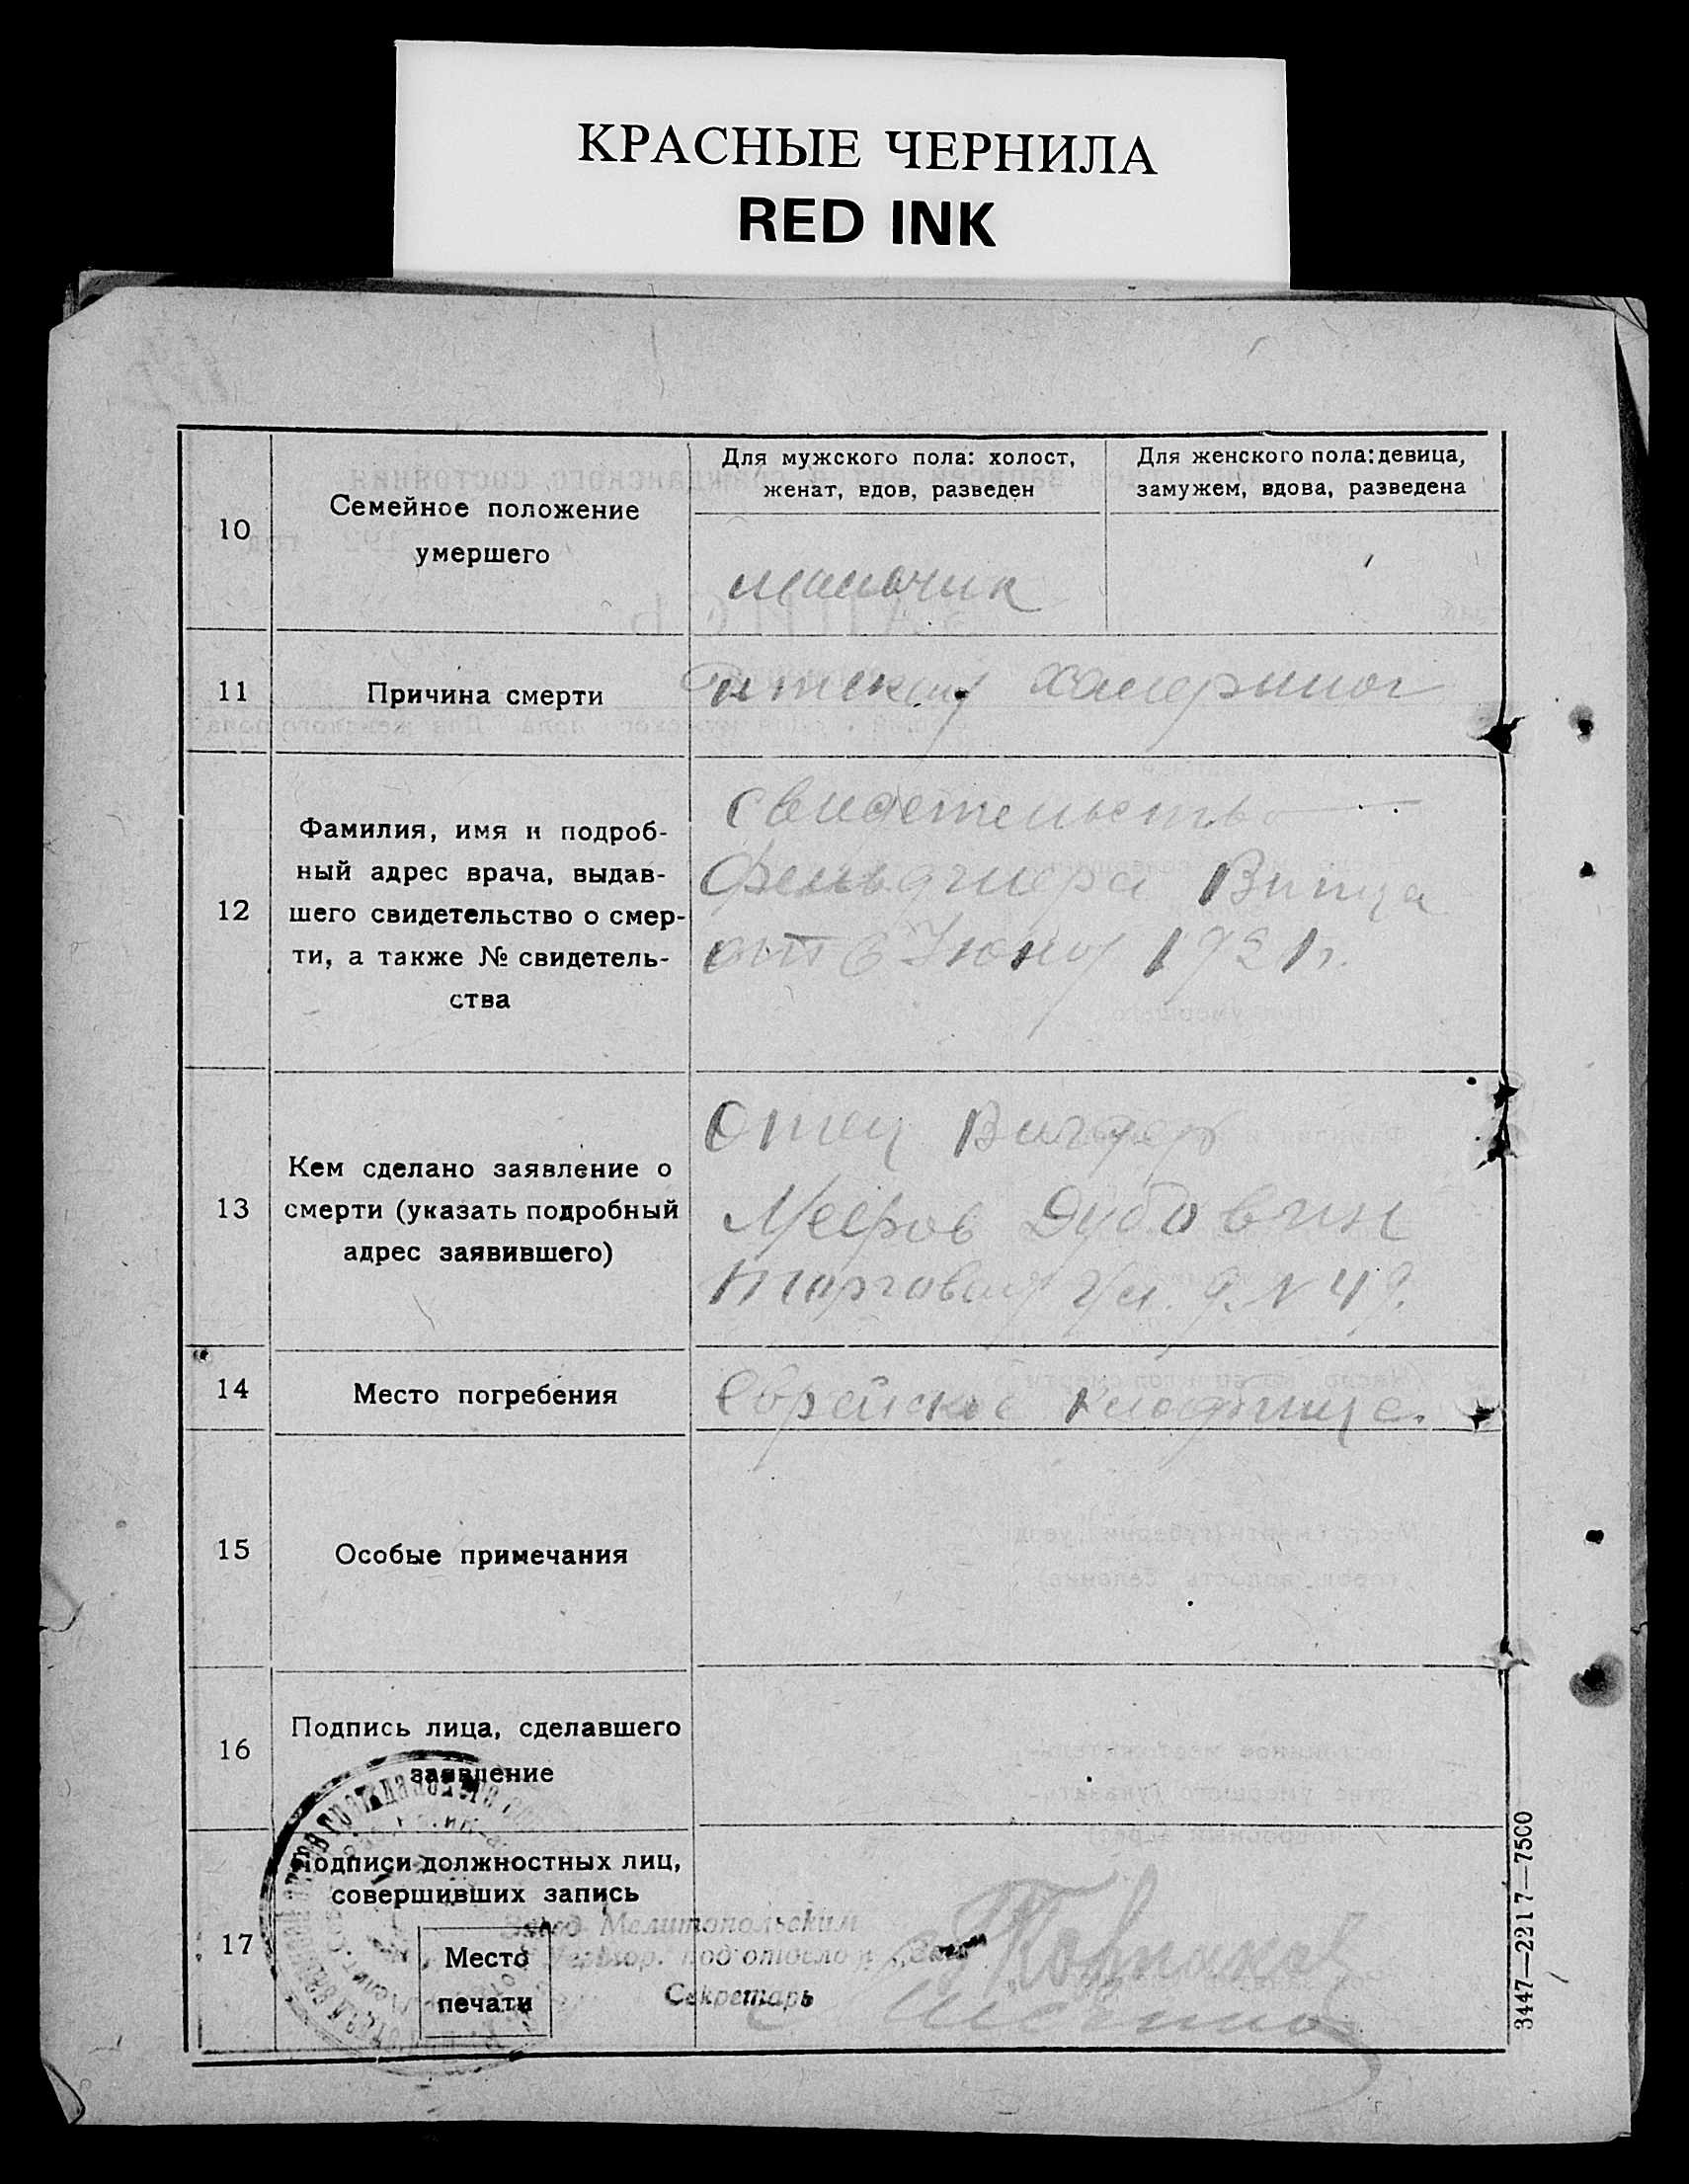 КРАСНЫЕ ЧЕРНИЛА
RED INK
10
Семейное положение
умершего
Для мужского пола: холост,
женат, вдов, разведен
Для женского пола: девица,
замужем, вдова, разведена
мальчик
11
Причина смерти
Детская холерина
12
Фамилия, имя и подроб-
ный адрес врача, выдав-
шего свидетельство о смер-
ти, а также № свидетель-
ства
Свидетельство
Фельдшера
от 6 Июня 1921 г.
13
Кем сделано заявление о
смерти (указать подробный
адрес заявившего)
Отец Вигдор
Мееров Дубовин
Торговая ул. д. N 49.
14
Место погребения
Еврейское кладбище.
15
Особые примечания
16
Подпись лица, сделавшего
заявление
17
Подписи должностных лиц,
совершивших запись
Место
печати
Завод Мелитопольским
под'отделом
Секретарь
3447—2217—7500